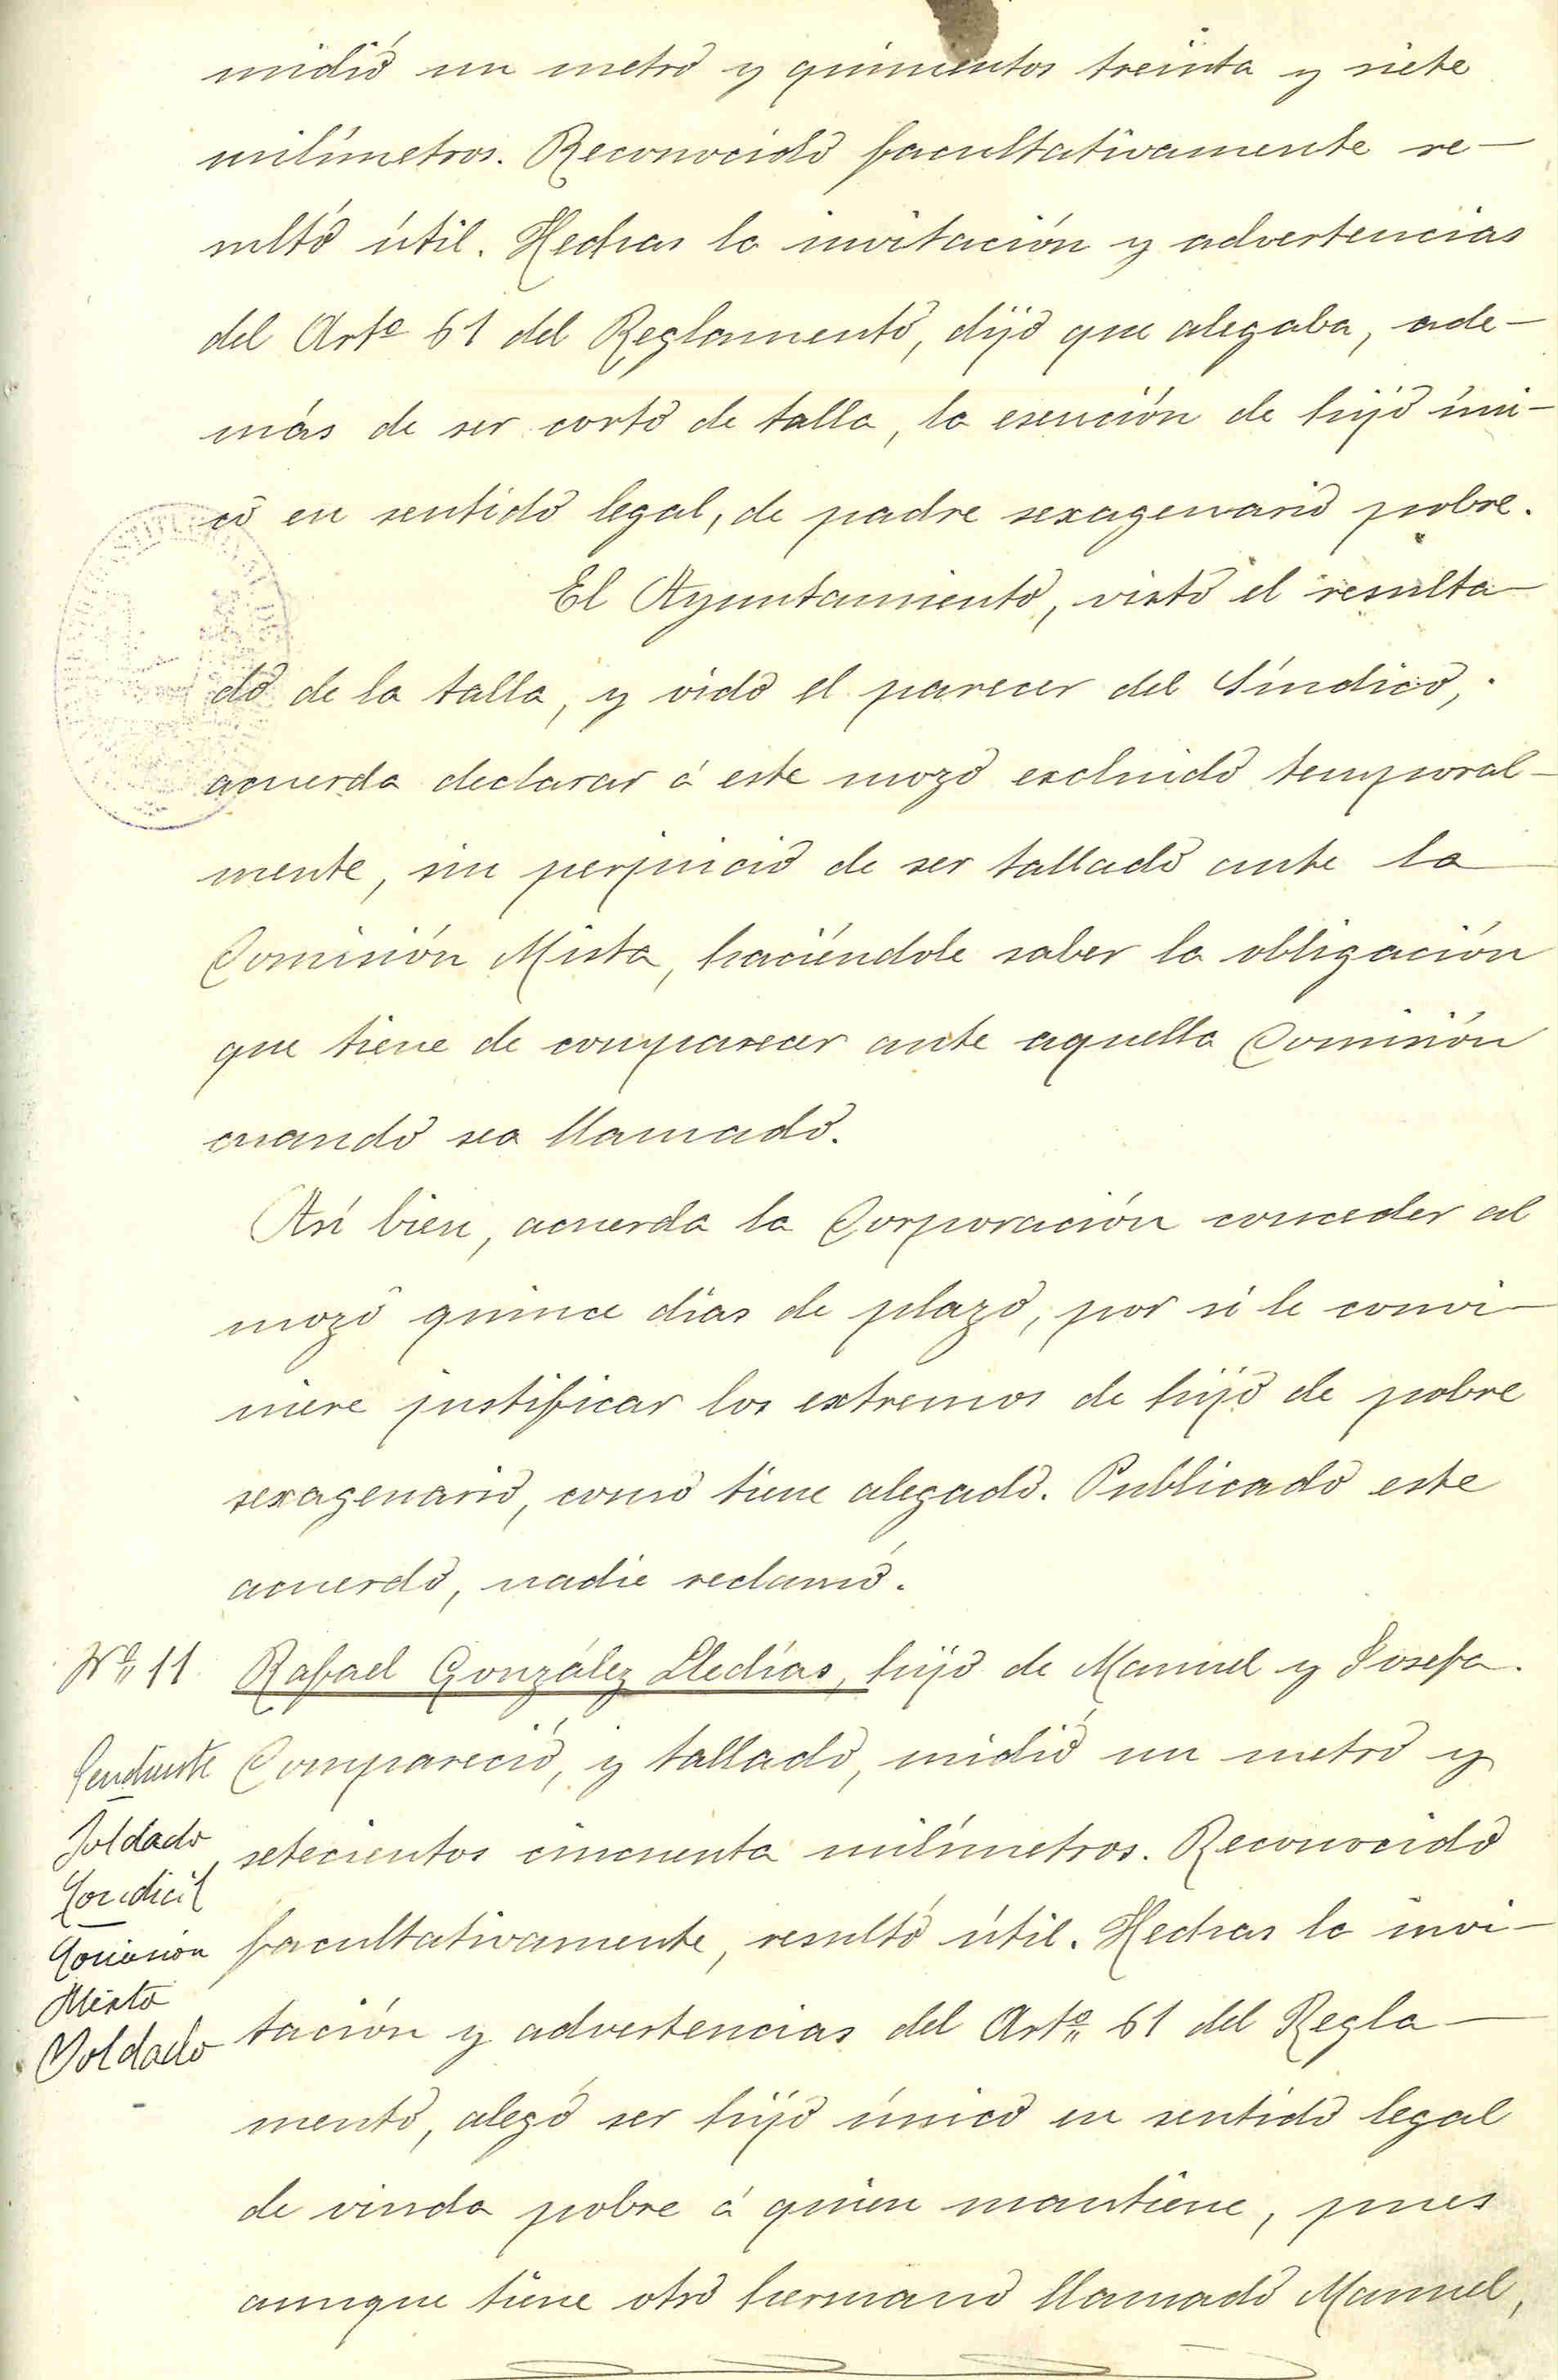 midió un metro y quinientos treinta y siete
milímetros. Reconocido facultativamente re-
sultó útil. Hechas la invitación y advertencias
del Artº 61 del Reglamento, dijo que alegaba, ade-
más de ser corto de talla, la esención de hijo úni-
co en sentido legal, de padre sexagenario pobre.
El Ayuntamiento, visto el resulta-
do de la talla, y oido el parecer del Síndico,
acuerda declarar á este mozo excluido temporal-
mente, sin perjuicio de ser tallado ante la
Comisión Mista, haciéndole saber la obligación
que tiene de comparecer ante aquella Comisión
cuando sea llamado.
Así bien, acuerda la Corporación conceder al
mozo quince días de plazo, por si le convi-
niere justificar los extremos de hijo de pobre
sexagenario, como tiene alegado. Publicado este
acuerdo, nadie reclamó.
Nº 11 Rafael González Lledías, hijo de Manuel y Josefa.
Pendiente Compareció, y tallado, midió un metro y
Soldado setecientos cincuenta milímetros. Reconocido
Condicil
Comision facultativamente, resultó útil. Hechas la invi-
Mixta
Soldado tación y advertencias del Artº 61 del Regla-
mento, alegó ser hijo único en sentido legal
de viuda pobre á quien mantiene, pues
aunque tiene otro hermano llamado Manuel,